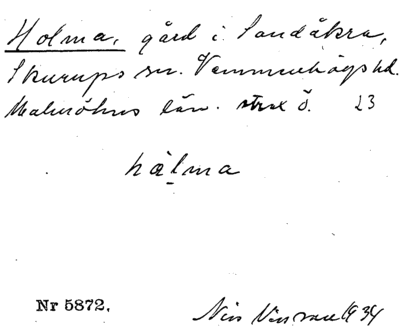 Holma, gård i Sandåkra,
Skurups sn. Vemmenhögs hd.
Malmöhus län. strax ö. 23
hålma
Nr 5872.
1934